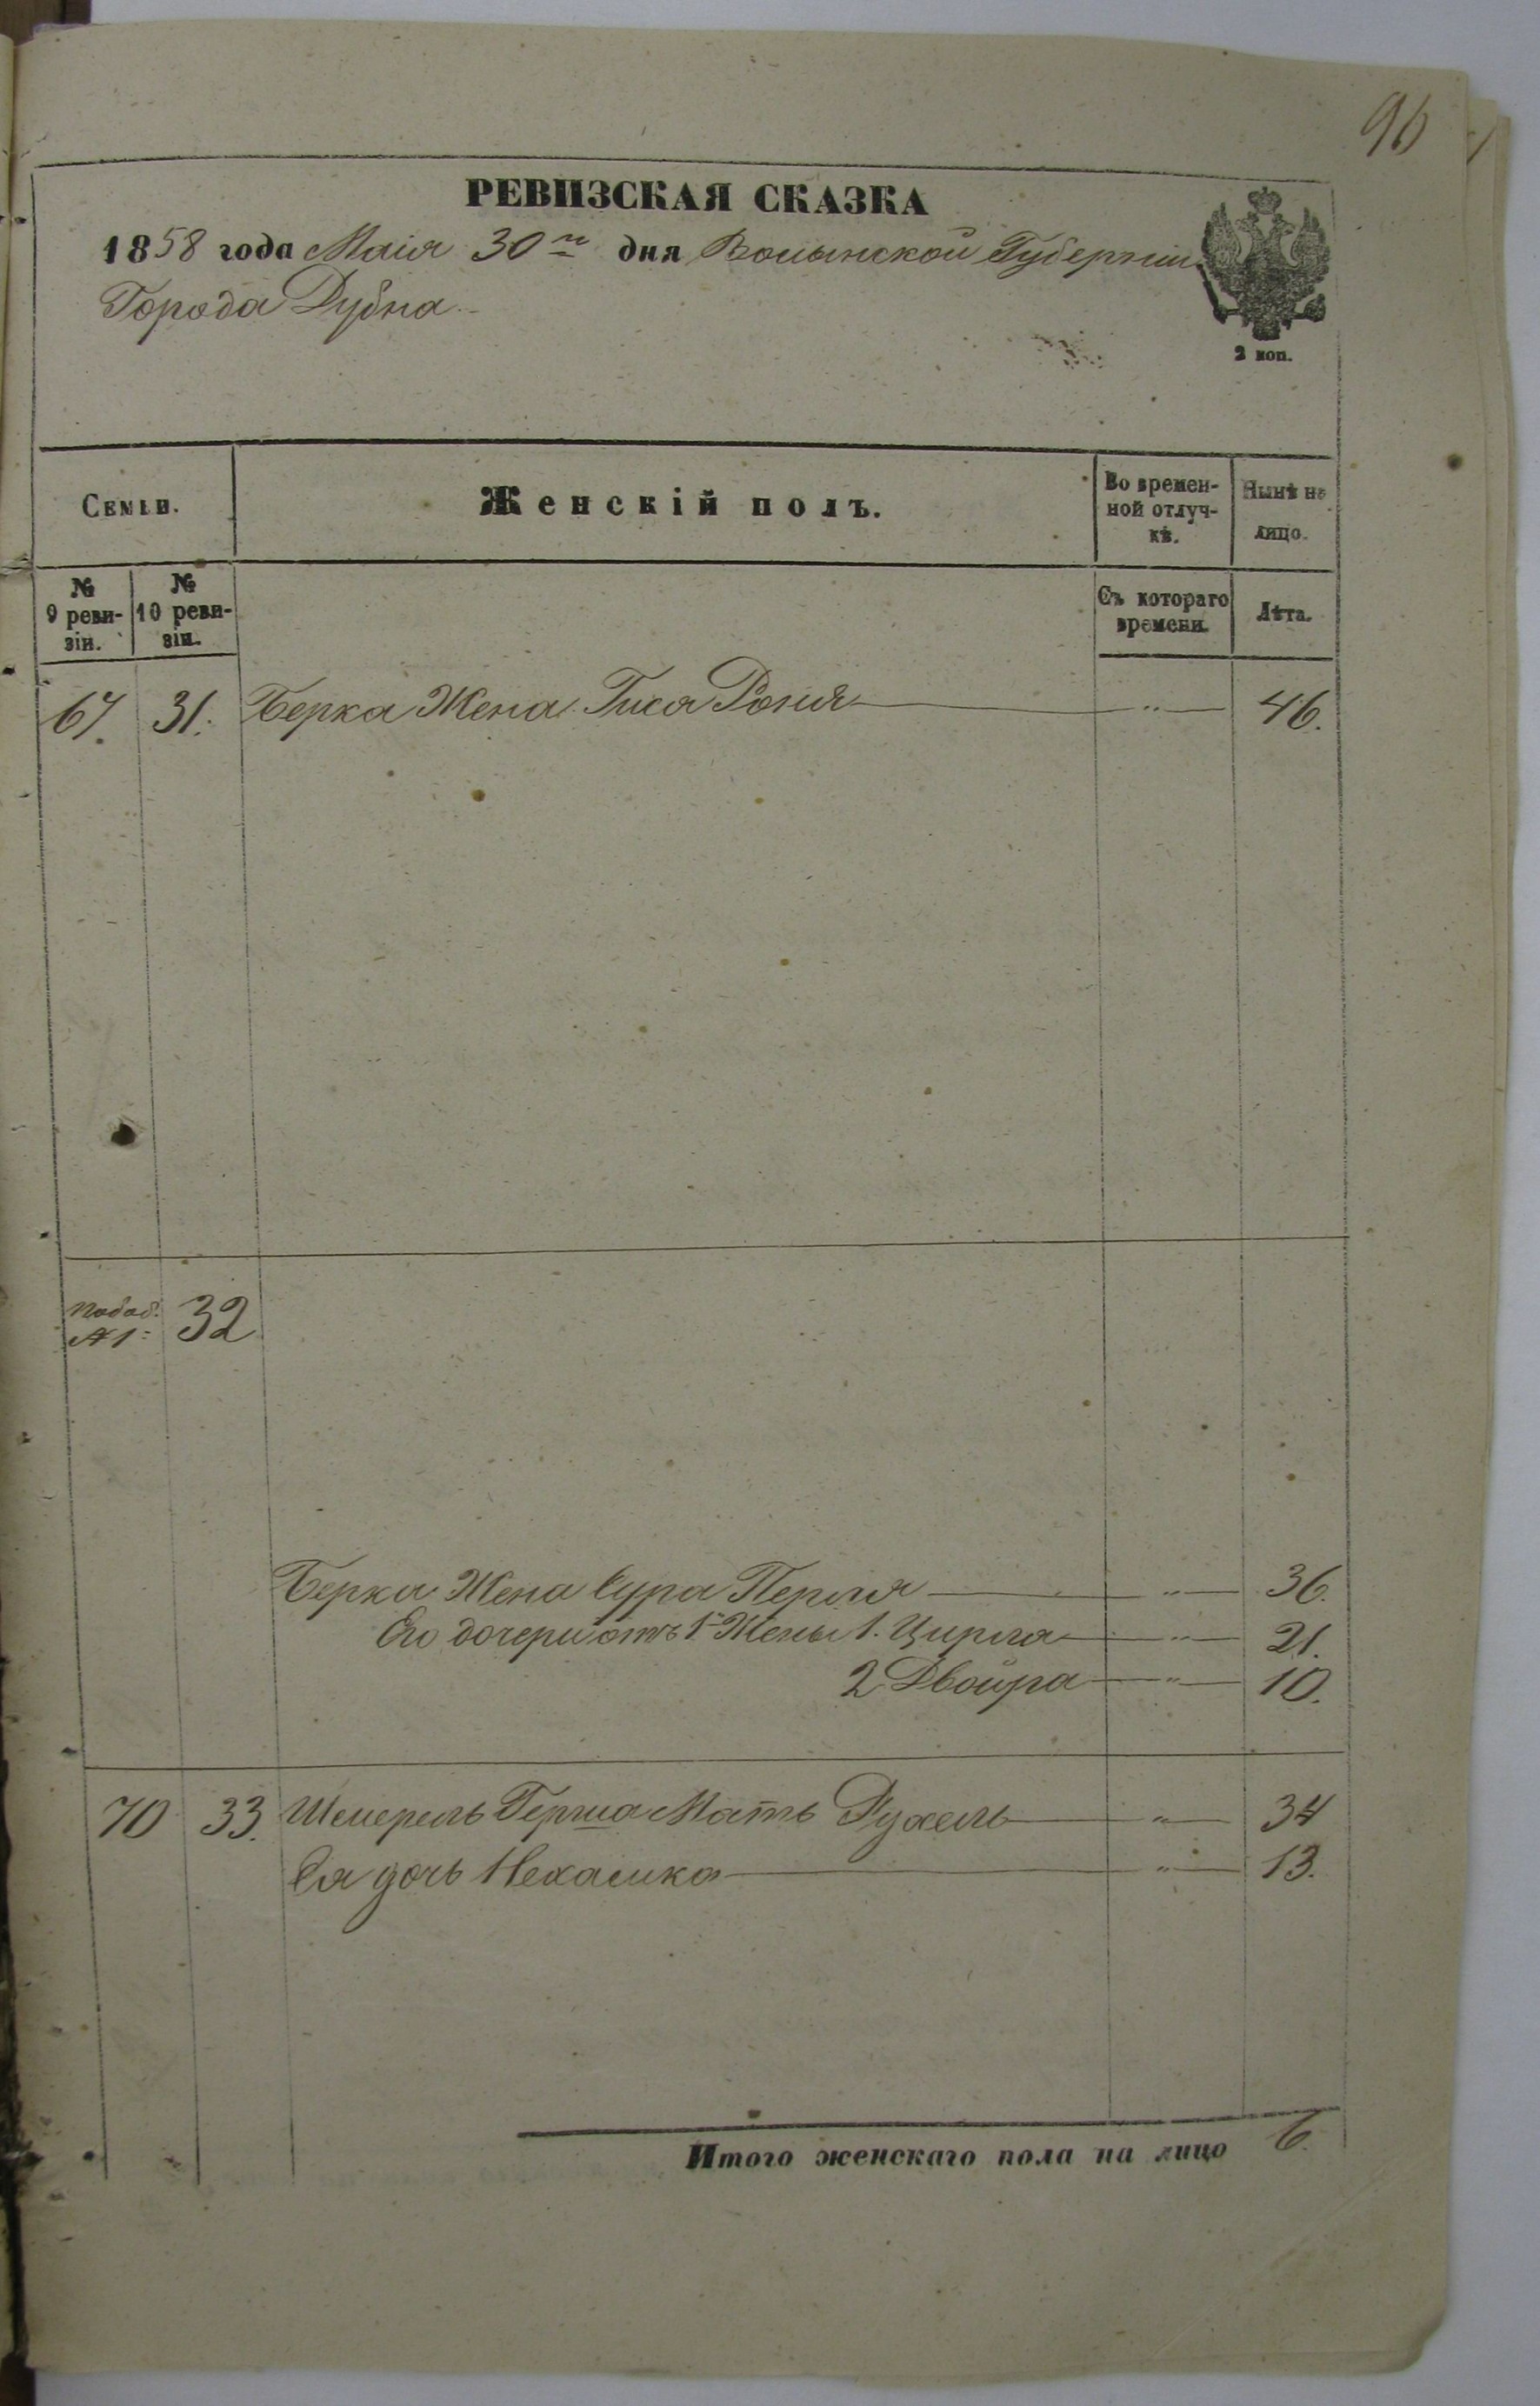 96
РЕВИЗСКАЯ СКАЗКА
1858 года Маія 30го дня Волынской Губерніи
Города Дубна
2 коп.
Семьи. Женскій полъ. Во времен-ной отлуч-кѣ. Нынѣ на лицо.
№ 9 реви-зіи. № 10 реви-зіи. Съ котораго времени. Лѣта.
67. 31. Берка Жена Гиса Роня — " — 46.
№ 1 32
Берка Жена Сура Перля — " — 36.
Его дочери отъ 1й Жены 1. Цирла — " — 21.
2 Двойра — " — 10.
70 33. Шмерель Герша Мать Рухель — " — 34
Ея дочь Нехамка — " — 13.
Итого женскаго пола на лицо 6.